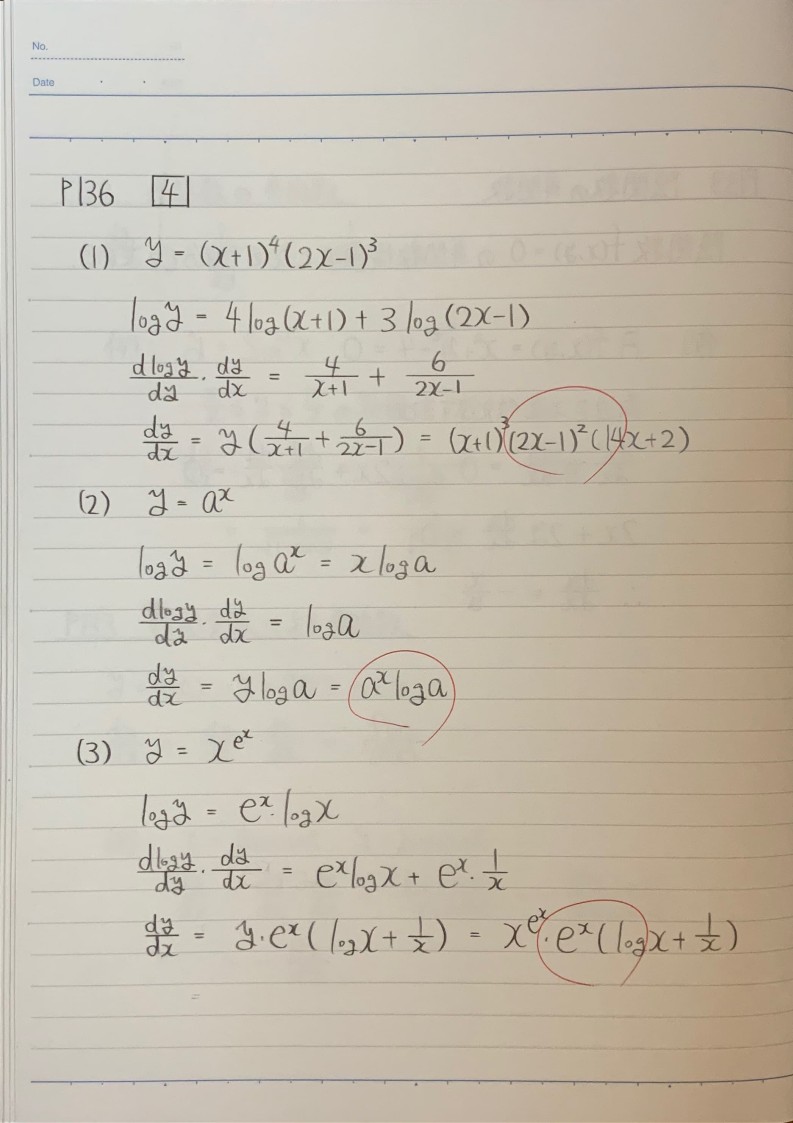 No.
Date
P136 4
(1) y = (x+1)^4(2x-1)^3
log y = 4 log(x+1) + 3 log(2x-1)
dlogy/dy · dy/dx = 4/(x+1) + 6/(2x-1)
dy/dx = y(4/(x+1) + 6/(2x-1)) = (x+1)^3(2x-1)^2(14x+2)
(2) y = a^x
log y = log a^x = x log a
dlogy/dy · dy/dx = log a
dy/dx = y log a = a^x log a
(3) y = x^(e^x)
log y = e^x · log x
dlogy/dy · dy/dx = e^x log x + e^x · 1/x
dy/dx = y · e^x (log x + 1/x) = x^(e^x) · e^x (log x + 1/x)